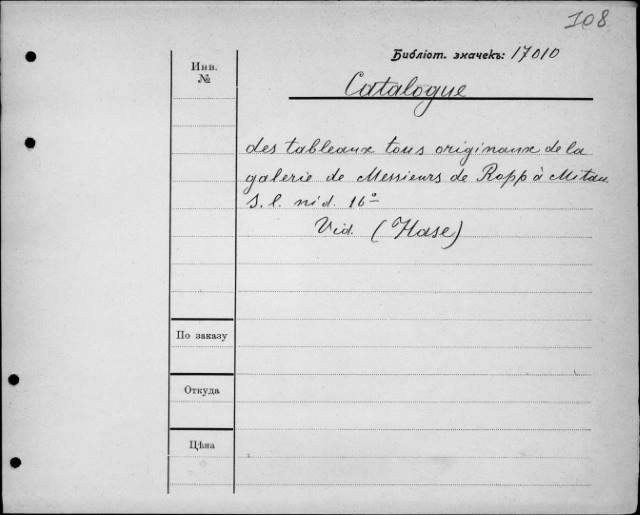 108
Библіот. значекъ: 17010
Инв.
№
Catalogue
des tableaux tous originaux de la
galerie de Messieurs de Ropp à Mitau.
S. l. ni d. 16°
Vid. (Hase)
По заказу
Откуда
Цѣна